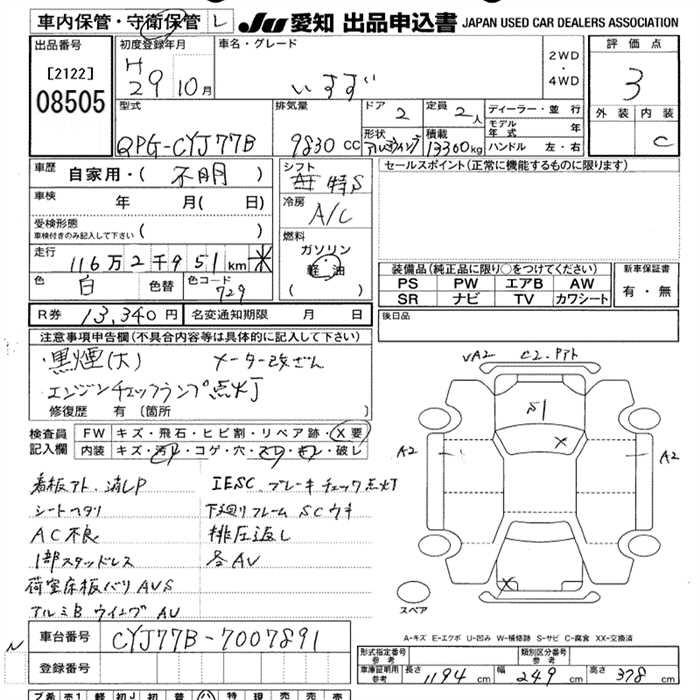 車内保管・守衛保管 L JU 愛知 出品申込書 JAPAN USED CAR DEALERS ASSOCIATION
出品番号 初度登録年月 車名・グレード 評価点
[2122] H 29 10月 いすゞ 2WD・4WD 3
08505 型式 排気量 ドア 2 定員 2人 ディーラー・並行 外装 内装
QPG-CYJ77B 9830 CC 形状 アルミウイング 積載 13300kg モデル年式 年 C
ハンドル 左・右
車歴 自家用・( 不明 ) シフト 特S セールスポイント(正常に機能するものに限ります)
車検 年 月( 日) 冷房 A/C
受検形態 車検付きのみ記入して下さい ( )
燃料 ガソリン 軽・油 ( )
走行 116万2千951km ※
色 白 色替 色コード 729
装備品(純正品に限り○をつけてください) 新車保証書
PS PW エアB AW 有・無
SR ナビ TV カワシート
R券 13,340円 名変通知期限 月 日 後日品
注意事項申告欄(不具合内容等は具体的に記入して下さい)
黒煙(大) メーター改ざん
エンジンチェックランプ点灯
修復歴 有 [箇所 ]
検査員記入欄 FW キズ・飛石・ヒビ割・リペア跡・X要
内装 キズ・汚レ・コゲ・穴・スレ・キレ・破レ
看板アト、消LP IESC、ブレーキチェック点灯
シートヘタリ 下廻リフレームSCウキ
AC不良 排圧返し
1部スタッドレス 各AV
荷室床板バリAVS
アルミB ウイングAU
VA2 C2.Pアト
S1
X
A2 A2
X
スペア
A-キズ E-エクボ U-凹み W-補修跡 S-サビ C-腐食 XX-交換済
N 車台番号 CYJ77B-7007891
登録番号
形式指定番号 参考 類別区分番号 参考
車庫証明用 参考 長さ 1194 cm 幅 249 cm 高さ 378 cm